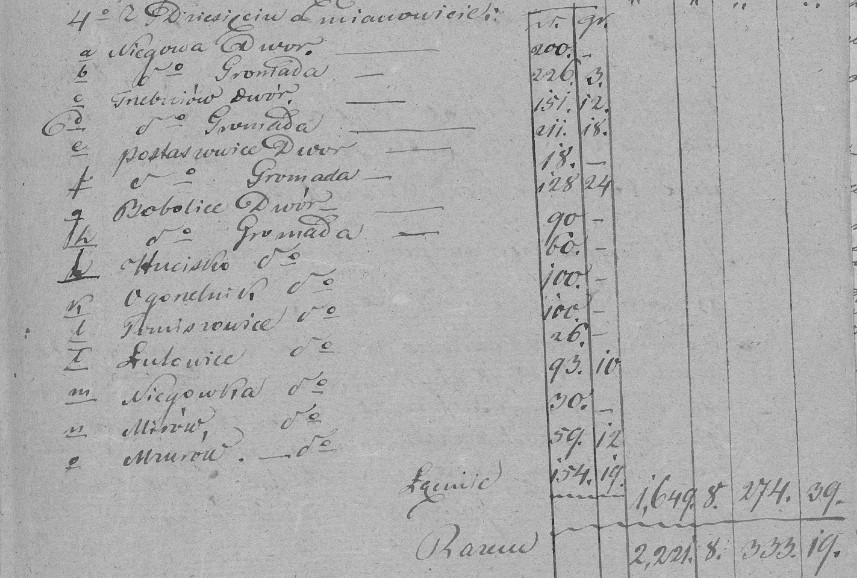 4º z Dziesięciu a mianowicie: zł. gr.
a Niegowa Dwór. — 200. —
b dº Gromada — 226. 3.
c Trebniów Dwór. — 151. 12.
d dº Gromada — 211. 18.
e Postaszowice Dwor — 18. —
f dº Gromada — 128 24
g Bobolice Dwór — 90 —
h dº Gromada — 60. —
Hucisko dº 100. —
k Ogorzelnik dº 100. —
l Tomiszowice dº 26. —
ł Łutowice dº 93. 10
m Niegowka dº 30. —
n Mirów, dº 59. 12
o Mzurów. — dº 154. 19.
Łącznie 1,649. 8. 274. 39.
Razem 2,221. 8. 333. 19.